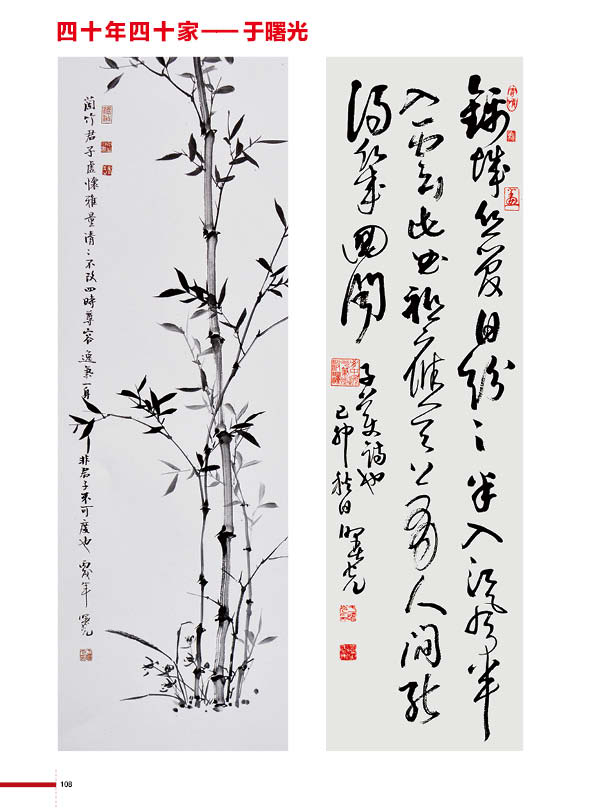 四十年四十家——于曙光
竹君子虚懷雅量清〻不改四時尊容逸氣一身
非君子不可度也 年 曙光
錦城丝管日紛〻半入江風半
入雲此曲祇應天上有人间能
得幾回聞
子美詩也
己卯秋日曙光
108